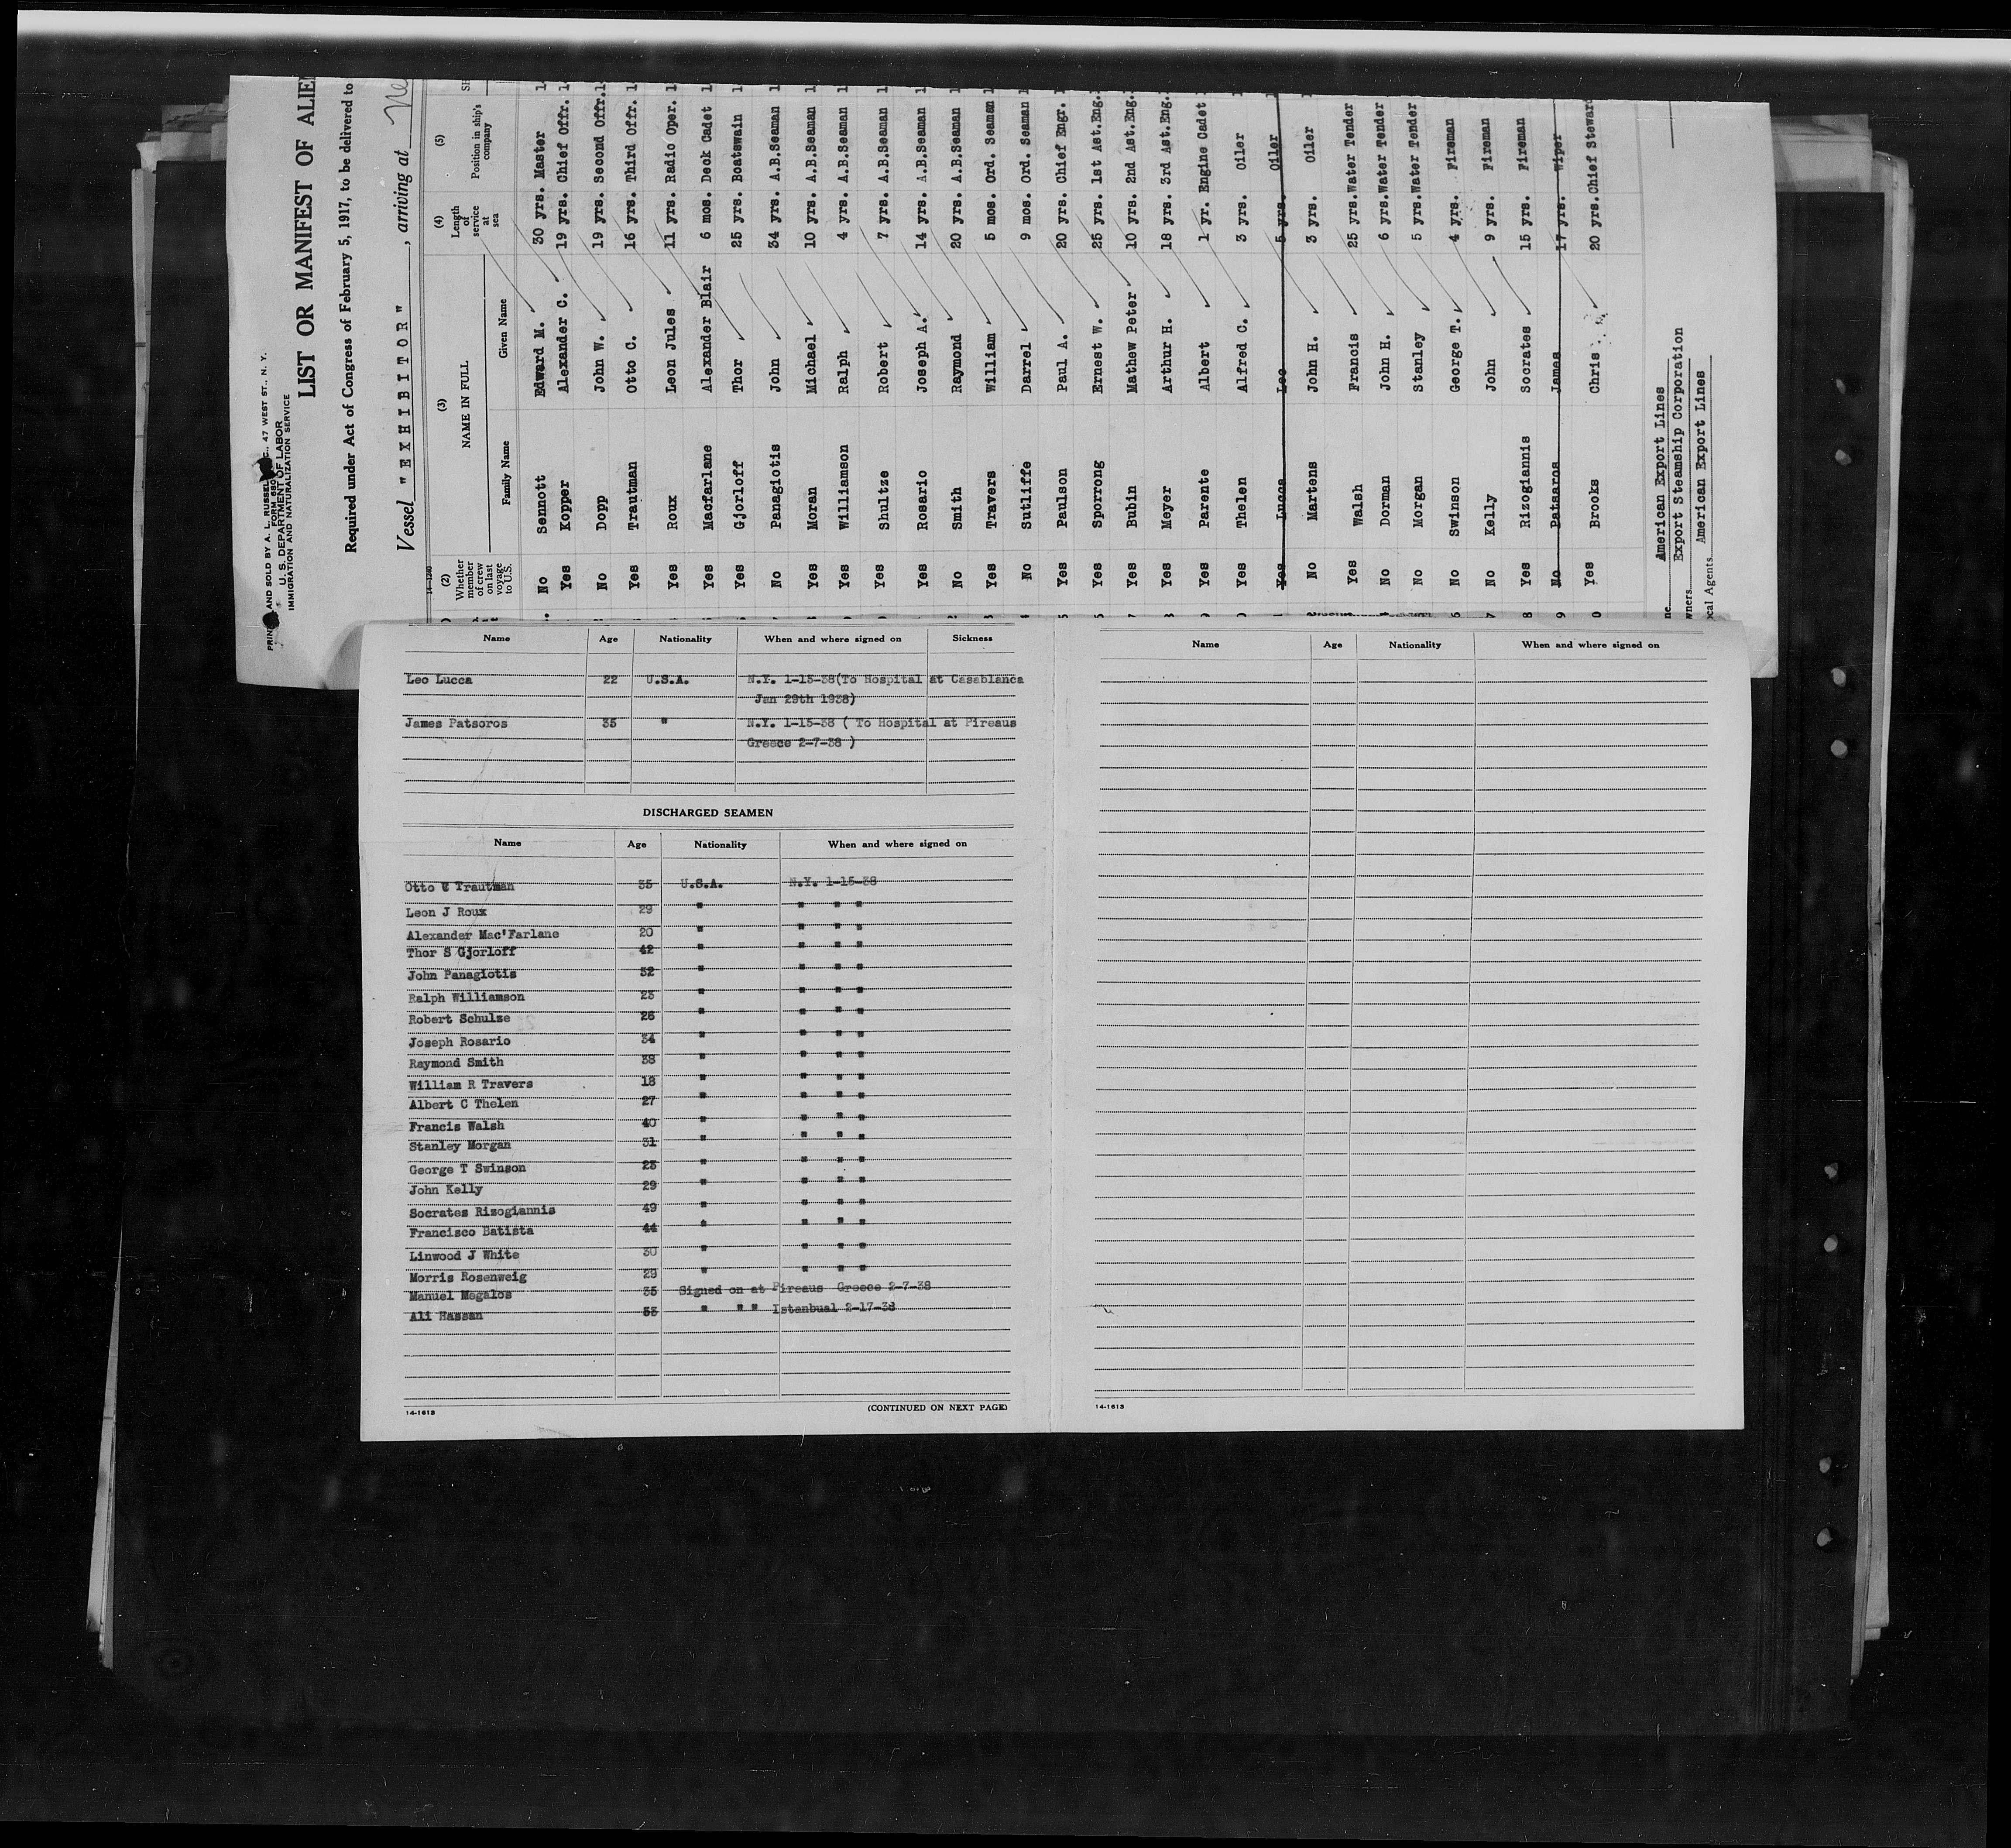 PRIN AND SOLD BY A. L. RUSSEL C., 47 WEST ST., N. Y.
FORM 680
U. S. DEPARTMENT OF LABOR
IMMIGRATION AND NATURALIZATION SERVICE
LIST OR MANIFEST OF ALIE
Required under Act of Congress of February 5, 1917, to be delivered to
Vessel "EXHIBITOR", arriving at Ne
14-1240
(2) Whether member of crew on last voyage to U.S. (3) NAME IN FULL Family Name Given Name (4) Length of service at sea (5) Position in ship's company
No Sennott Edward M. 30 yrs. Master
Yes Kopper Alexander C. 19 yrs. Chief Offr.
No Dopp John W. 19 yrs. Second Offr.
Yes Trautman Otto C. 16 yrs. Third Offr.
Yes Roux Leon Jules 11 yrs. Radio Oper.
Yes Macfarlane Alexander Blair 6 mos. Deck Cadet
Yes Gjorloff Thor 25 yrs. Boatswain
No Panagiotis John 34 yrs. A.B.Seaman
Yes Moran Michael 10 yrs. A.B.Seaman
Yes Williamson Ralph 4 yrs. A.B.Seaman
Yes Shultze Robert 7 yrs. A.B.Seaman
Yes Rosario Joseph A. 14 yrs. A.B.Seaman
No Smith Raymond 20 yrs. A.B.Seaman
Yes Travers William 5 mos. Ord. Seaman
No Sutliffe Darrel 9 mos. Ord. Seaman
Yes Paulson Paul A. 20 yrs. Chief Engr.
Yes Sporrong Ernest W. 25 yrs. 1st Ast.Eng.
Yes Bubin Mathew Peter 10 yrs. 2nd Ast.Eng.
Yes Meyer Arthur H. 18 yrs. 3rd Ast.Eng.
Yes Parente Albert 1 yr. Engine Cadet
Yes Thelen Alfred C. 3 yrs. Oiler
Yes Lucca Leo 5 yrs. Oiler
No Martens John H. 3 yrs. Oiler
Yes Walsh Francis 25 yrs. Water Tender
No Dorman John H. 6 yrs. Water Tender
No Morgan Stanley 5 yrs. Water Tender
No Swinson George T. 4 yrs. Fireman
No Kelly John 9 yrs. Fireman
Yes Rizogiannis Socrates 15 yrs. Fireman
No Patsaros James 17 yrs. Wiper
Yes Brooks Chris 20 yrs. Chief Steward
American Export Lines
wners Export Steamship Corporation
cal Agents American Export Lines
Name Age Nationality When and where signed on Sickness
Leo Lucca 22 U.S.A. N.Y. 1-15-38(To Hospital at Casablanca
Jan 29th 1938)
James Patsoros 35 " N.Y. 1-15-38 ( To Hospital at Pireaus
Greece 2-7-38 )
DISCHARGED SEAMEN
Name Age Nationality When and where signed on
Otto C Trautman 35 U.S.A. N.Y. 1-15-38
Leon J Roux 29 " " " "
Alexander Mac'Farlane 20 " " " "
Thor S Gjorloff 42 " " " "
John Panagiotis 52 " " " "
Ralph Williamson 23 " " " "
Robert Schulze 26 " " " "
Joseph Rosario 34 " " " "
Raymond Smith 38 " " " "
William R Travers 18 " " " "
Albert C Thelen 27 " " " "
Francis Walsh 40 " " " "
Stanley Morgan 31 " " " "
George T Swinson 23 " " " "
John Kelly 29 " " " "
Socrates Rizogiannis 49 " " " "
Francisco Batista 44 " " " "
Linwood J White 30 " " " "
Morris Rosenweig 29 " " " "
Manuel Megalos 35 Signed on at Pireaus Greece 2-7-38
Ali Hassan 53 " " " Istanbual 2-17-38
14-1613
(CONTINUED ON NEXT PAGE)
Name Age Nationality When and where signed on
14-1613